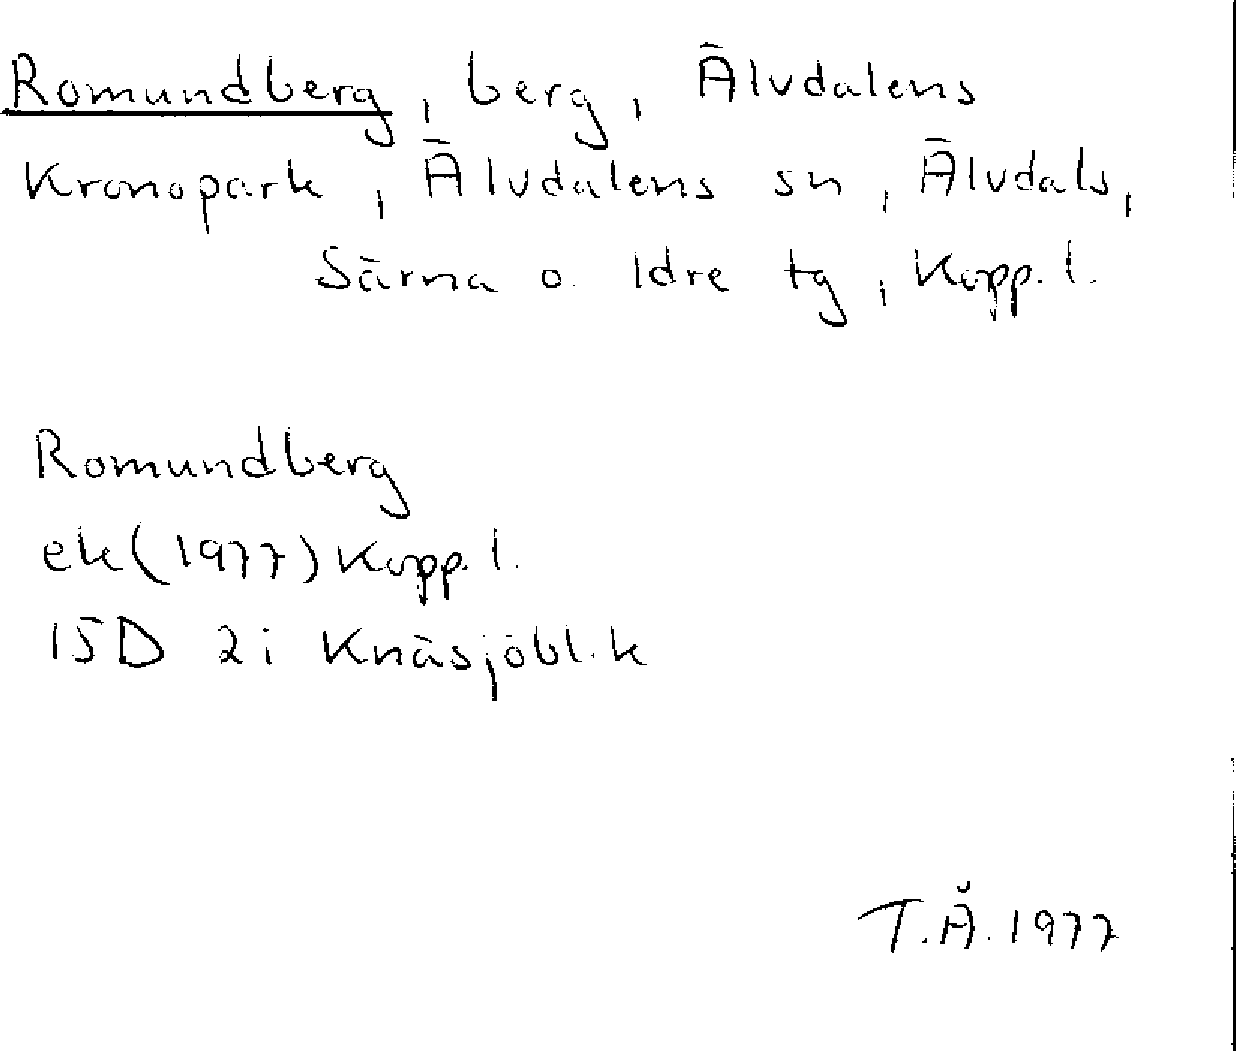 Romundberg, berg, Älvdalens
Kronopark, Älvdalens sn, Älvdals,
Särna o. Idre tg, Kopp. l.
Romundberg
ek (1977) Kopp. l.
15D 2i Knäsjöblik
T.Å. 1977